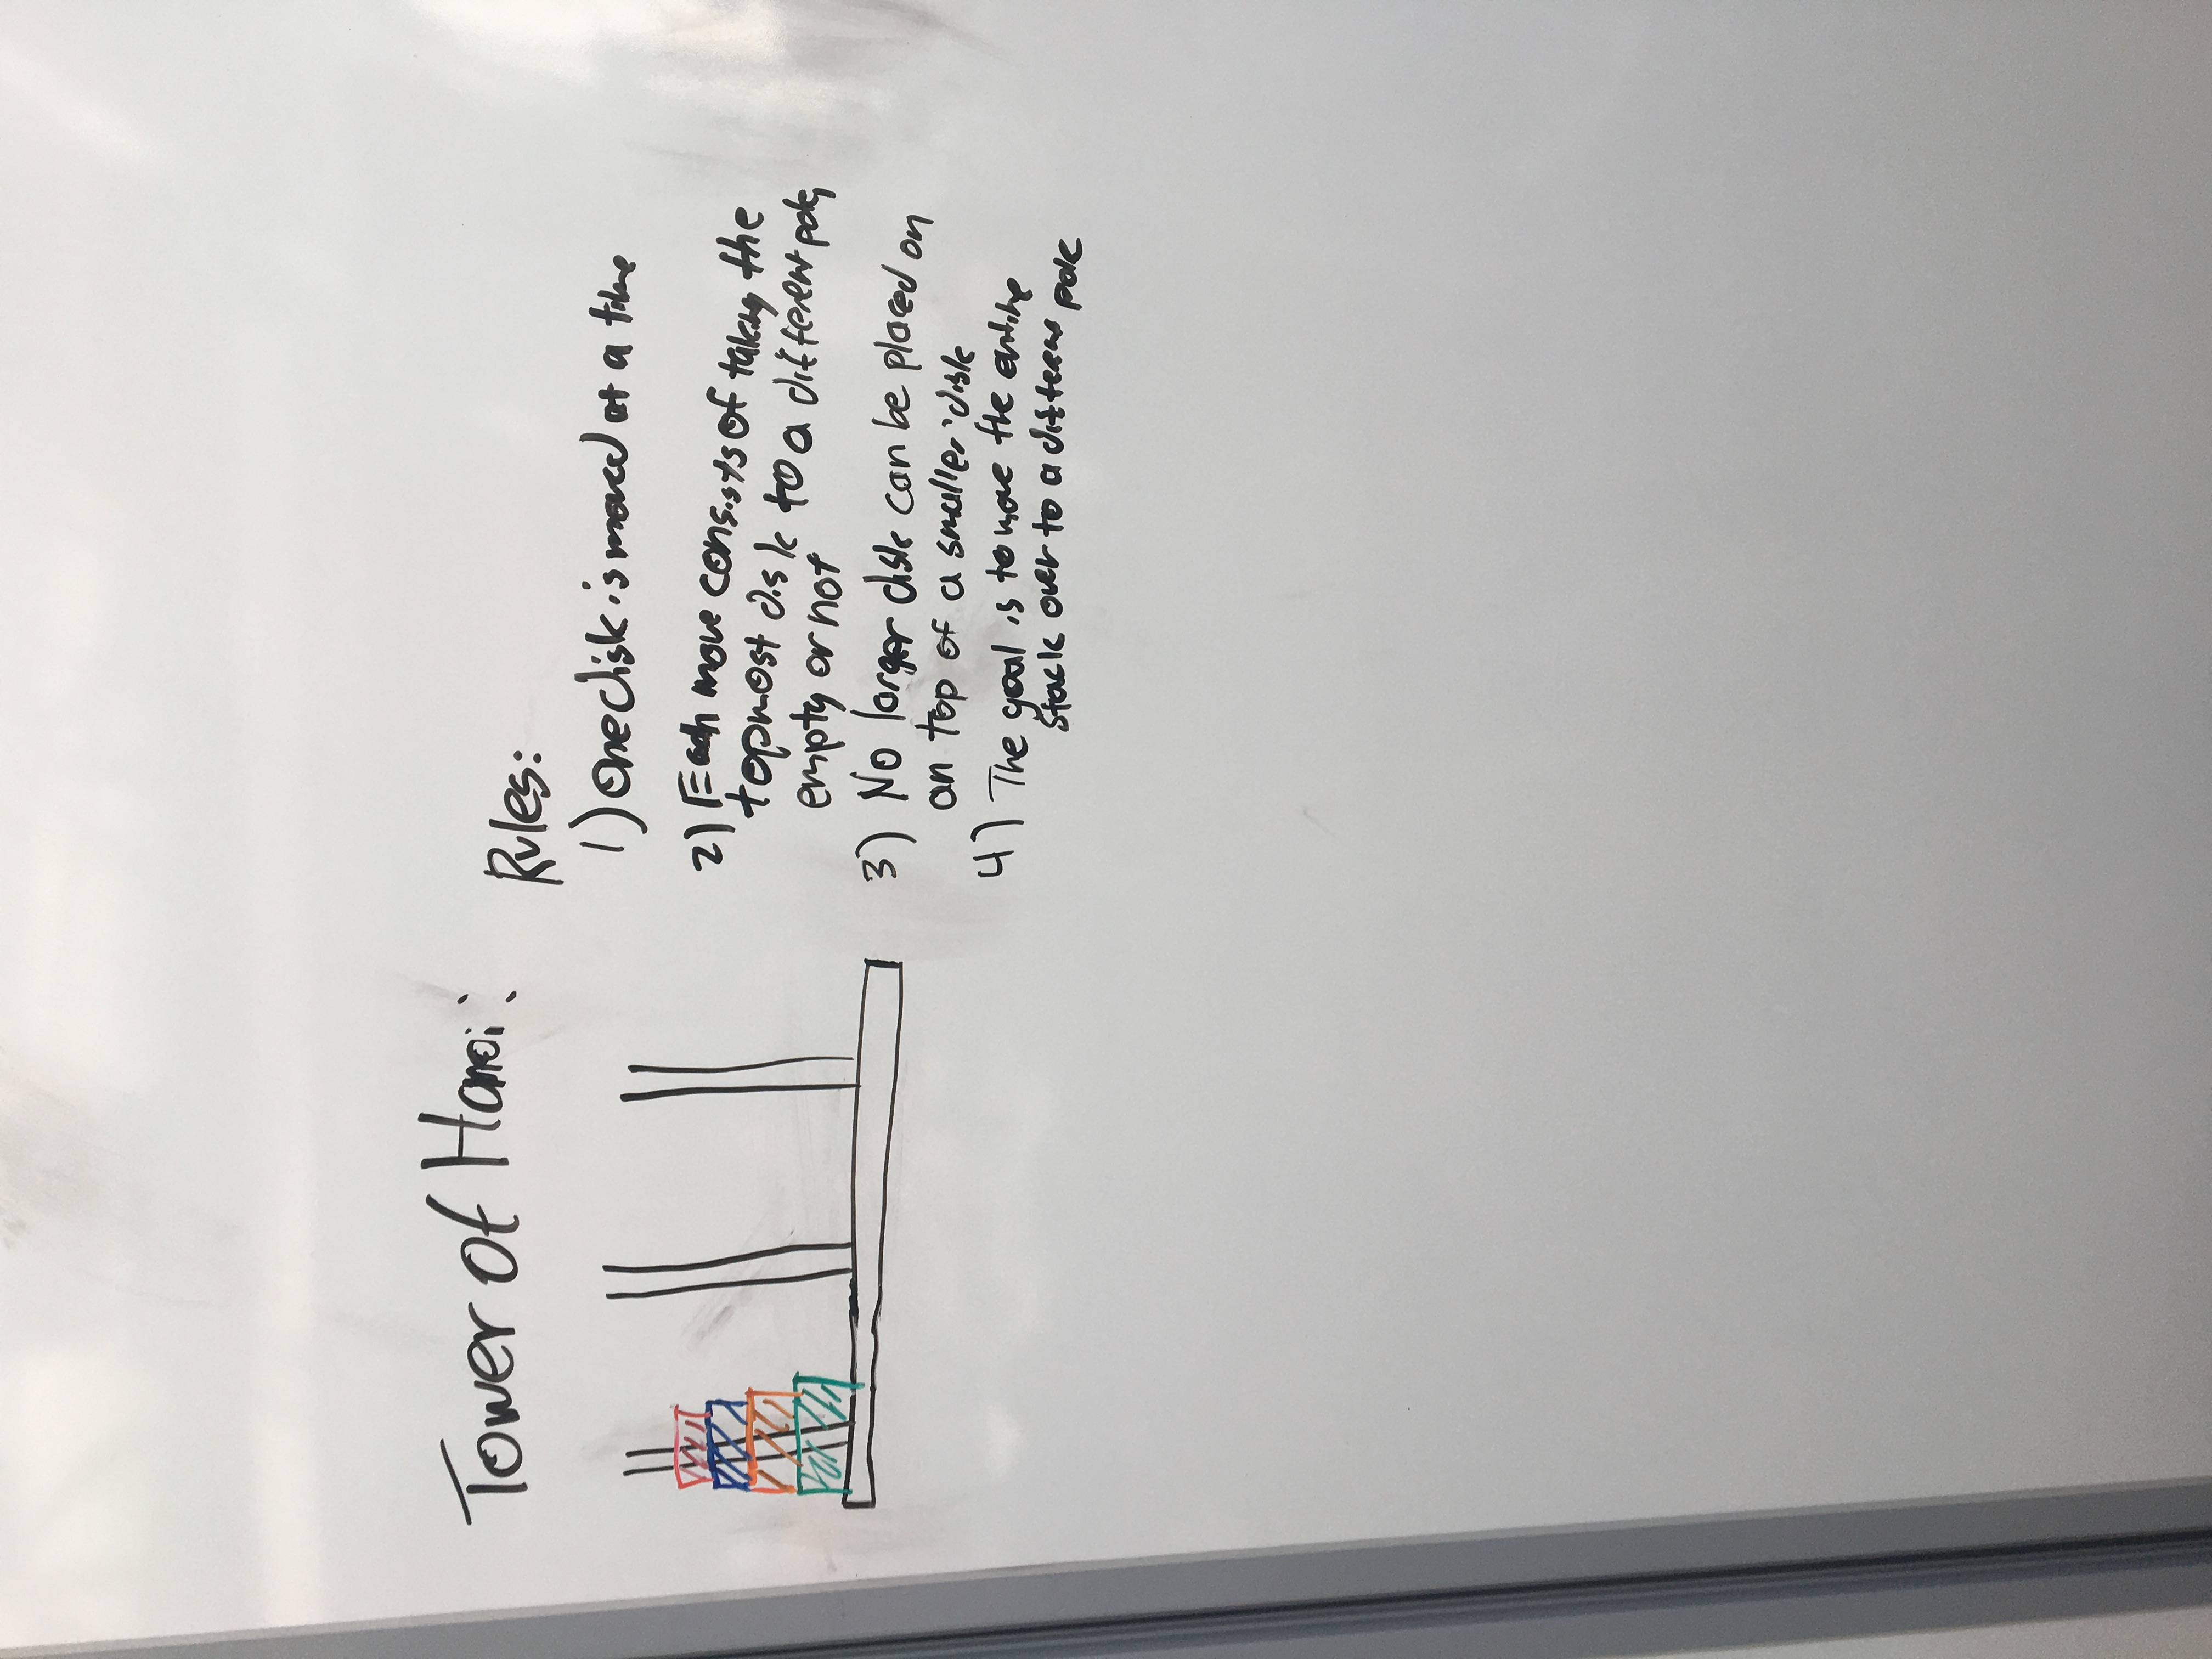 Tower of Hanoi:
Rules:
1) One disk is moved at a time
2) Each move consists of taking the
topmost disk to a different pole,
empty or not
3) No larger disk can be placed on
on top of a smaller disk
4) The goal is to move the entire
stack over to a different pole